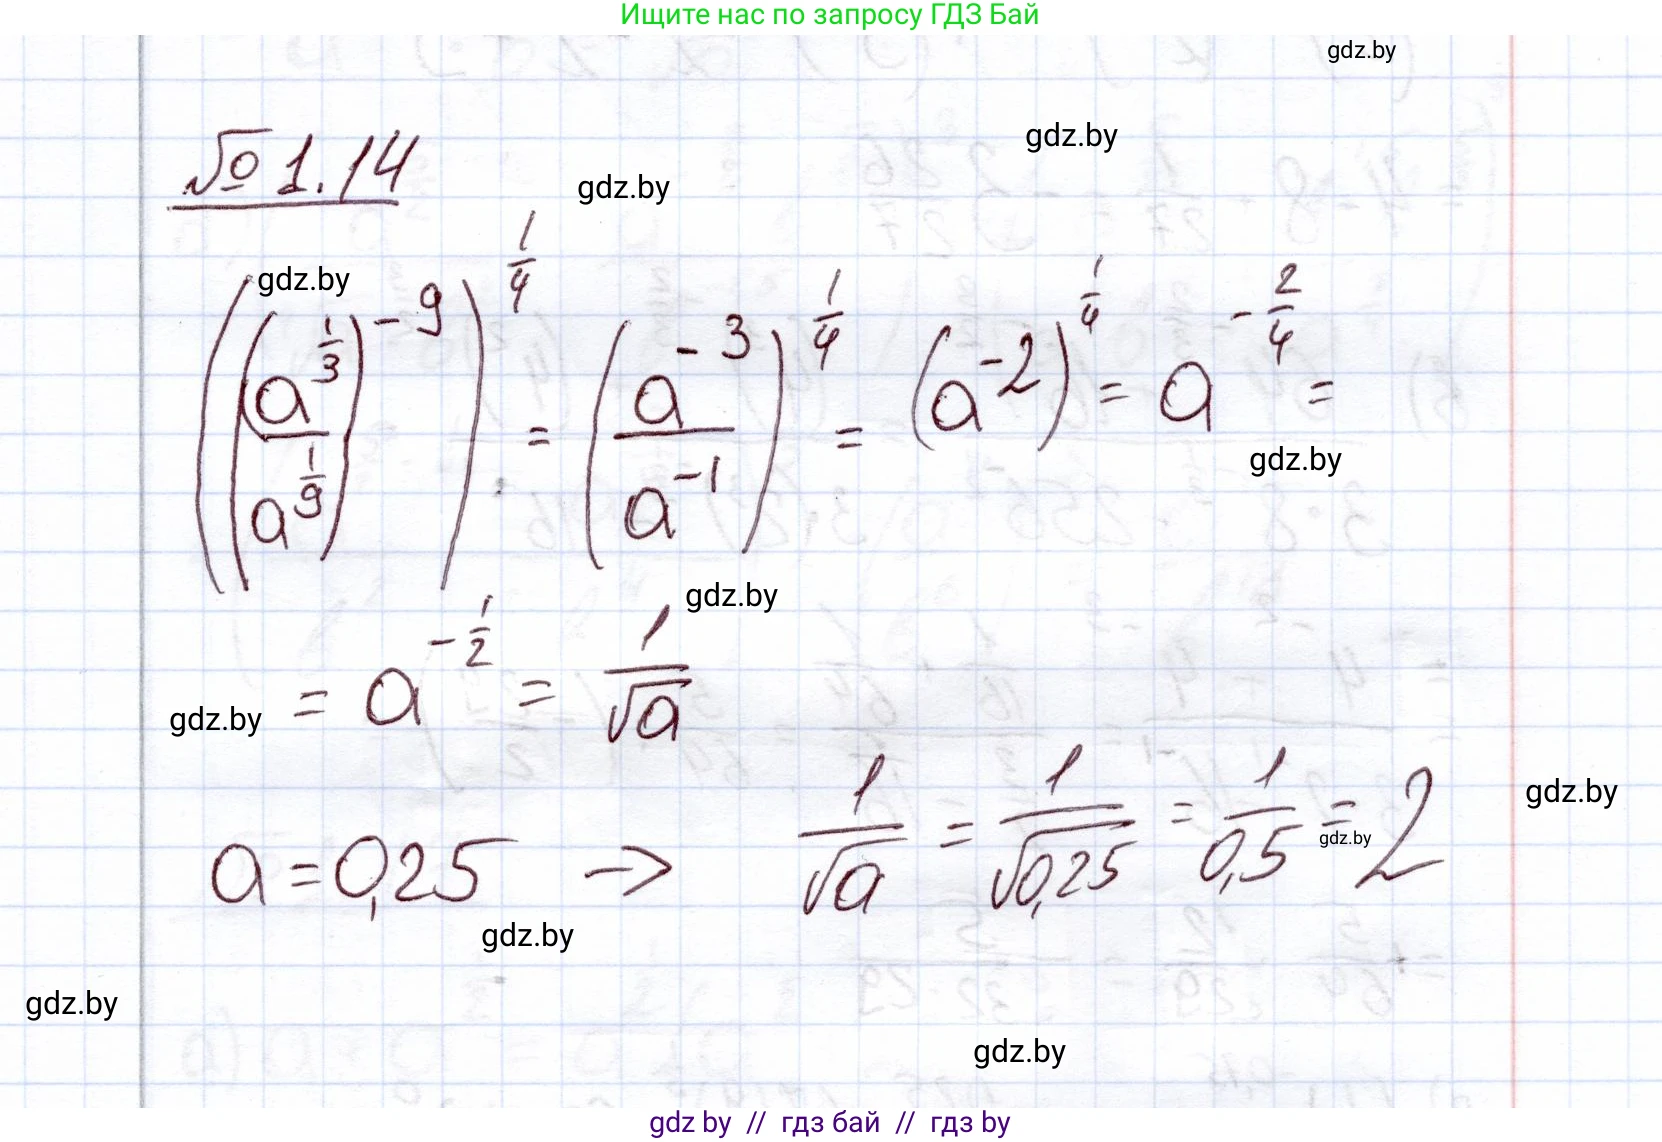 Ищите нас по запросу ГДЗ Бай
gdz.by
gdz.by
№ 1.14
gdz.by
gdz.by
((a^(1/3) / a^(1/9))^(-9))^(1/4) = (a^(-3) / a^(-1))^(1/4) = (a^(-2))^(1/4) = a^(-2/4) =
gdz.by
gdz.by
= a^(-1/2) = 1/√a
gdz.by
gdz.by
a = 0,25 → 1/√a = 1/√0,25 = 1/0,5 = 2
gdz.by
gdz.by
gdz.by
gdz.by
gdz by // гдз бай // gdz by